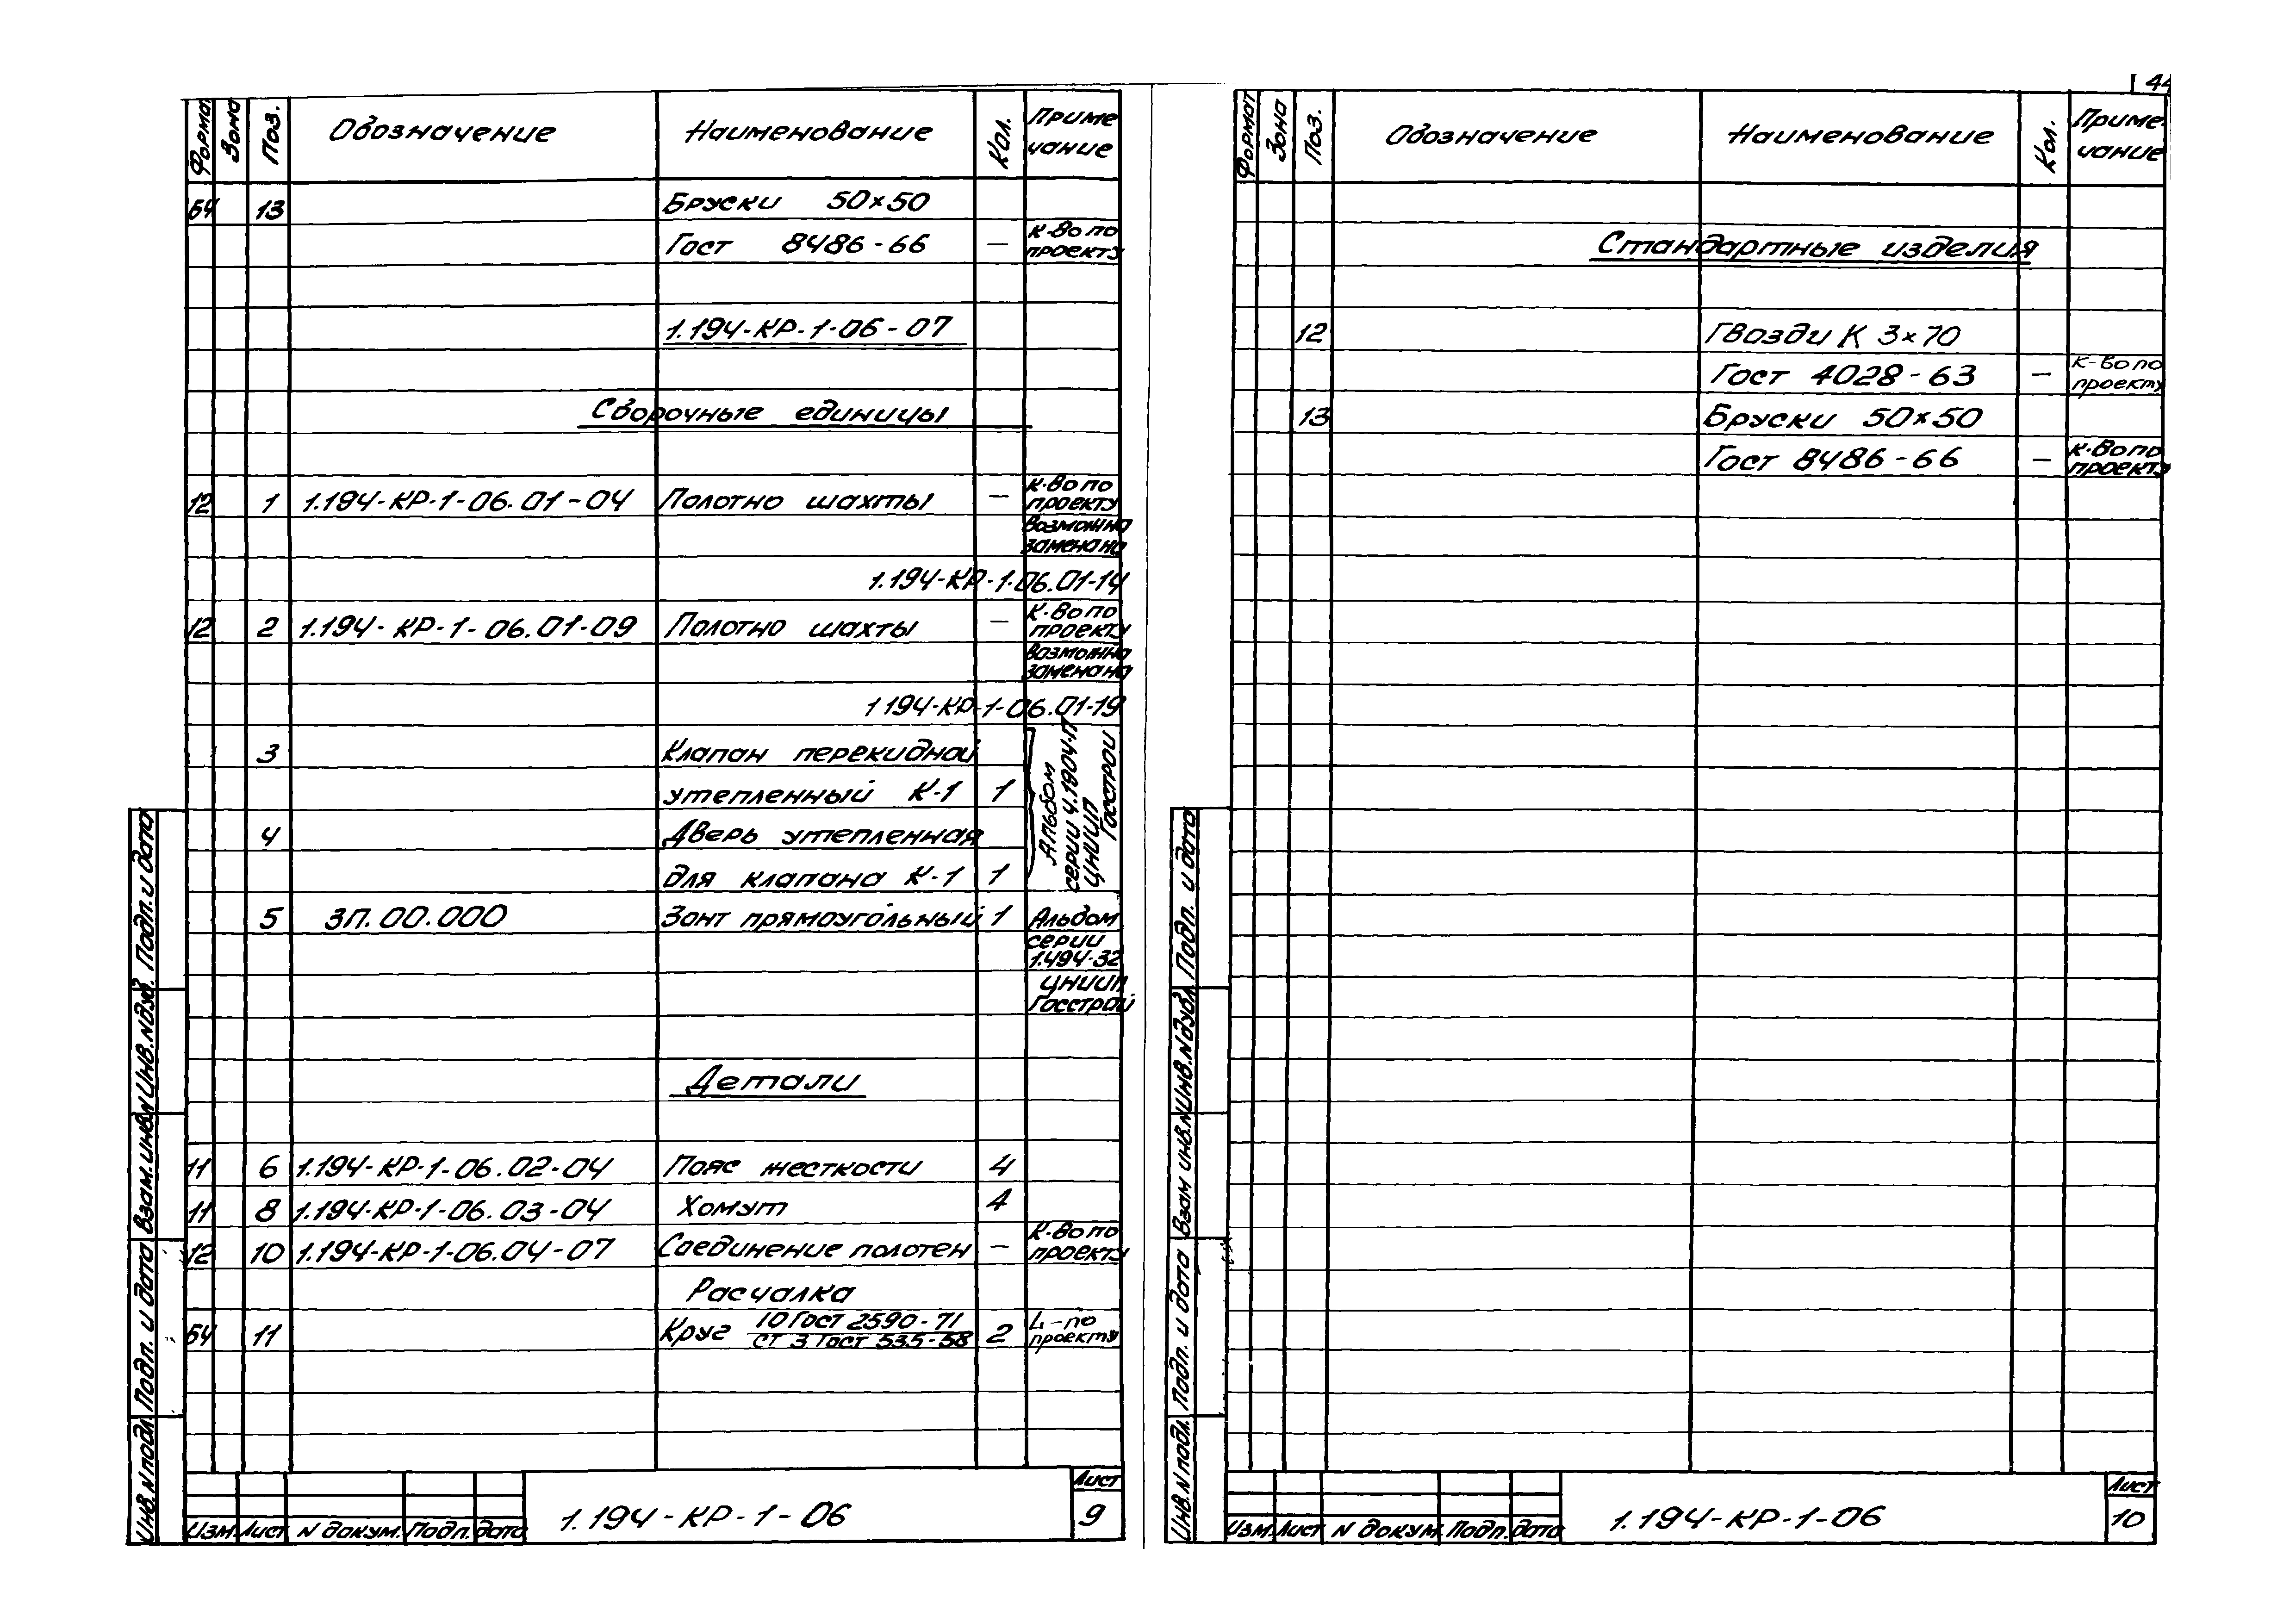 44
Формат Зона Поз. Обозначение Наименование Кол. Приме чание
БЧ 13 Бруски 50×50
Гост 8486-66 — к-во по проекту
1.194-КР-1-06-07
Сборочные единицы
12 1 1.194-КР-1-06.01-04 Полотно шахты — к-во по проекту
возможна замена на
1.194-КР-1.06.01-14
12 2 1.194-КР-1-06.01-09 Полотно шахты — к-во по проекту
возможна замена на
1 194-КР-1-06.01-19
3 Клапан перекидной
утепленный К-1 1
4 Дверь утепленная
для клапана К-1 1
Альбом
серии 4.1904-П
ЦНИИП
Госстрой
5 ЗП.00.000 Зонт прямоугольный 1 Альбом
серии
1.494-32
ЦНИИП
Госстрой
Детали
11 6 1.194-КР-1-06.02-04 Пояс жесткости 4
11 8 1.194-КР-1-06.03-04 Хомут 4
12 10 1.194-КР-1-06.04-07 Соединение полотен — к-во по проекту
Расчалка
БЧ 11 Круг 10 Гост 2590-71 / ст 3 Гост 535-58 2 L-по проекту
Инв. N подл. Подп. и дата Взам. инв. N Инв. N дуб. Подп. и дата
Изм. Лист N докум. Подп. дата
1.194-КР-1-06
Лист
9
Формат Зона Поз. Обозначение Наименование Кол. Приме-чание
Стандартные изделия
12 Гвозди К 3×70
Гост 4028-63 — к-во по проекту
13 Бруски 50×50
Гост 8486-66 — к-во по проекту
Инв. N подл. Подп. и дата Взам инв. N Инв. N дубл. Подп. и дата
Изм. Лист N докум. Подп. дата
1.194-КР-1-06
Лист
10